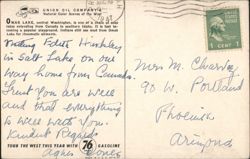 UNION OIL COMPANY'S
Natural Color Scenes of the West
OMAK LAKE, central Washington, is one of a chain of
lakes extending from Canada to southern Idaho. It is
a popular playground. Indians still use mud from Omak
Lake for
Visiting Edith Hinkley
in Salt Lake on our
way home from Canada.
Trust you are well
and that everything
is well with you.
Kindest Regards
Agnes Jones
TOUR THE WEST THIS YEAR WITH 76 GASOLINE
1 CENT 1
Mess M. Charvoz
90 W. Portland
Phoenix
Arizona